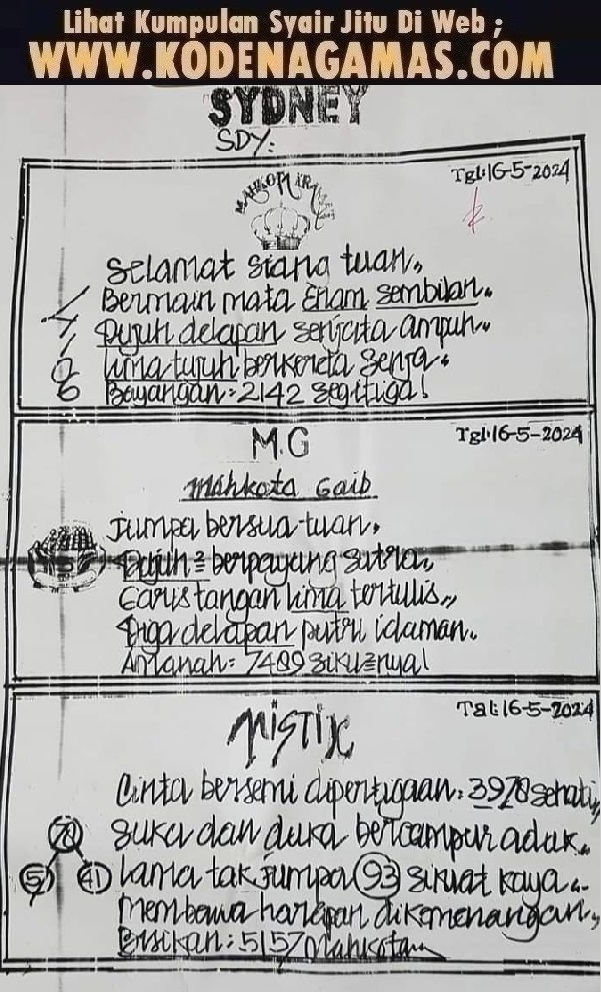 Lihat Kumpulan Syair Jitu Di Web ;
WWW.KODENAGAMAS.COM
SYDNEY
SDY:
Tgl:16-5-2024
Selamat siang tuan,,
Bermain mata Enam sembilan.
Tujuh delapan senjata ampuh.
Lima tujuh berkereta senja.
6 Bayangan: 2142 segitiga!
M.G
Tgl:16-5-2024
Mahkota Gaib
Jumpa bersua tuan,
Tujuh2 berpayung sutra,
Garis tangan lima tertulis,,
Tiga delapan putri idaman.
Amanah: 7489 siku2nya!
MISTIK
Tgl:16-5-2024
Cinta bersemi dipertigaan: 3978 sehati,,
suka dan duka bercampur aduk.
5 41 Lama tak jumpa 93 sikuat kaya..
Membawa harapan dikemenangan,,
Bisikan: 5157 Mahkota